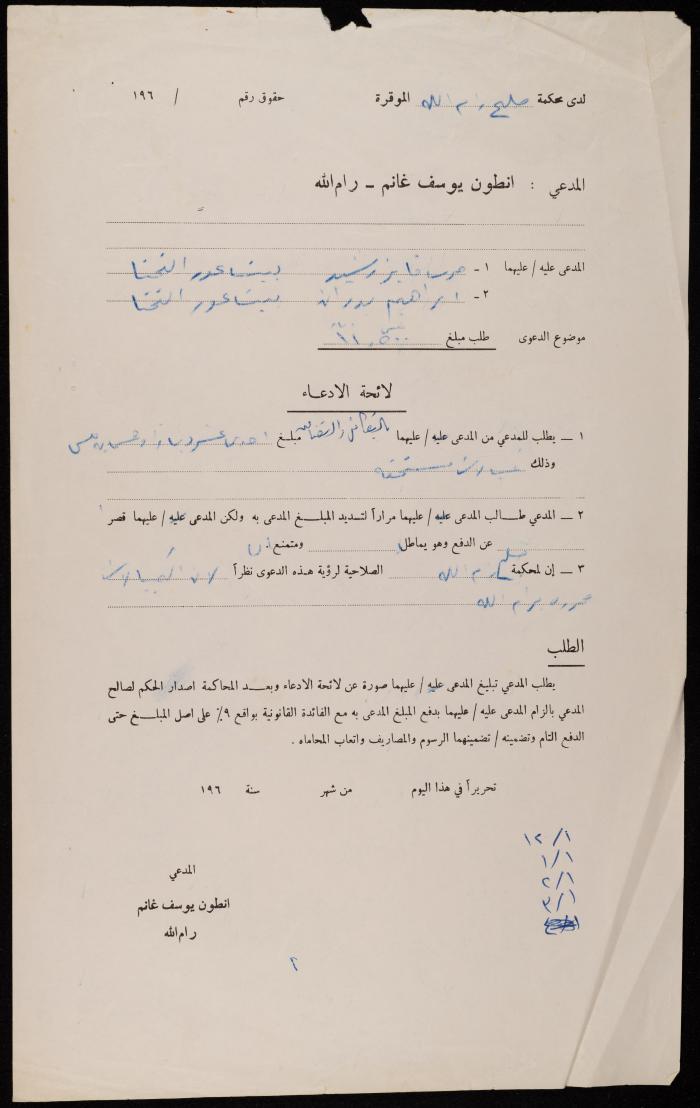 لدى محكمة صلح رام الله الموقرة حقوق رقم / ١٩٦
المدعي : انطون يوسف غانم ـ رام الله
المدعى عليه / عليهما ١ ـ حرب فايز رشيد بيت عور التحتا
٢ ـ ابراهيم بدران بيت عور التحتا
موضوع الدعوى طلب مبلغ
لائحة الادعاء
١ ـ يطلب للمدعي من المدعى عليه / عليهما بالتكافل والتضامن مبلغ احدى عشر دينار وخمسين فلس
وذلك كمبيالات مستحقة
٢ ـ المدعي طالب المدعى عليه / عليهما مراراً لتسديد المبلغ المدعى به ولكن المدعى عليه / عليهما قصر ا
عن الدفع وهو يماطل ومتمنع
٣ ـ إن لمحكمة صلح رام الله الصلاحية لرؤية هذه الدعوى نظراً لان الكمبيالات
محررة برام الله
الطلب
يطلب المدعي تبليغ المدعى عليه / عليهما صورة عن لائحة الادعاء وبعد المحاكمة اصدار الحكم لصالح
المدعي بالزام المدعى عليه / عليهما بدفع المبلغ المدعى به مع الفائدة القانونية بواقع ٩٪ على اصل المبلغ حتى
الدفع التام وتضمينه / تضمينهما الرسوم والمصاريف واتعاب المحاماه .
تحريراً في هذا اليوم من شهر سنة ١٩٦
١٢/١
١/١
٢/١
٣/١
المدعي
انطون يوسف غانم
رام الله
٢